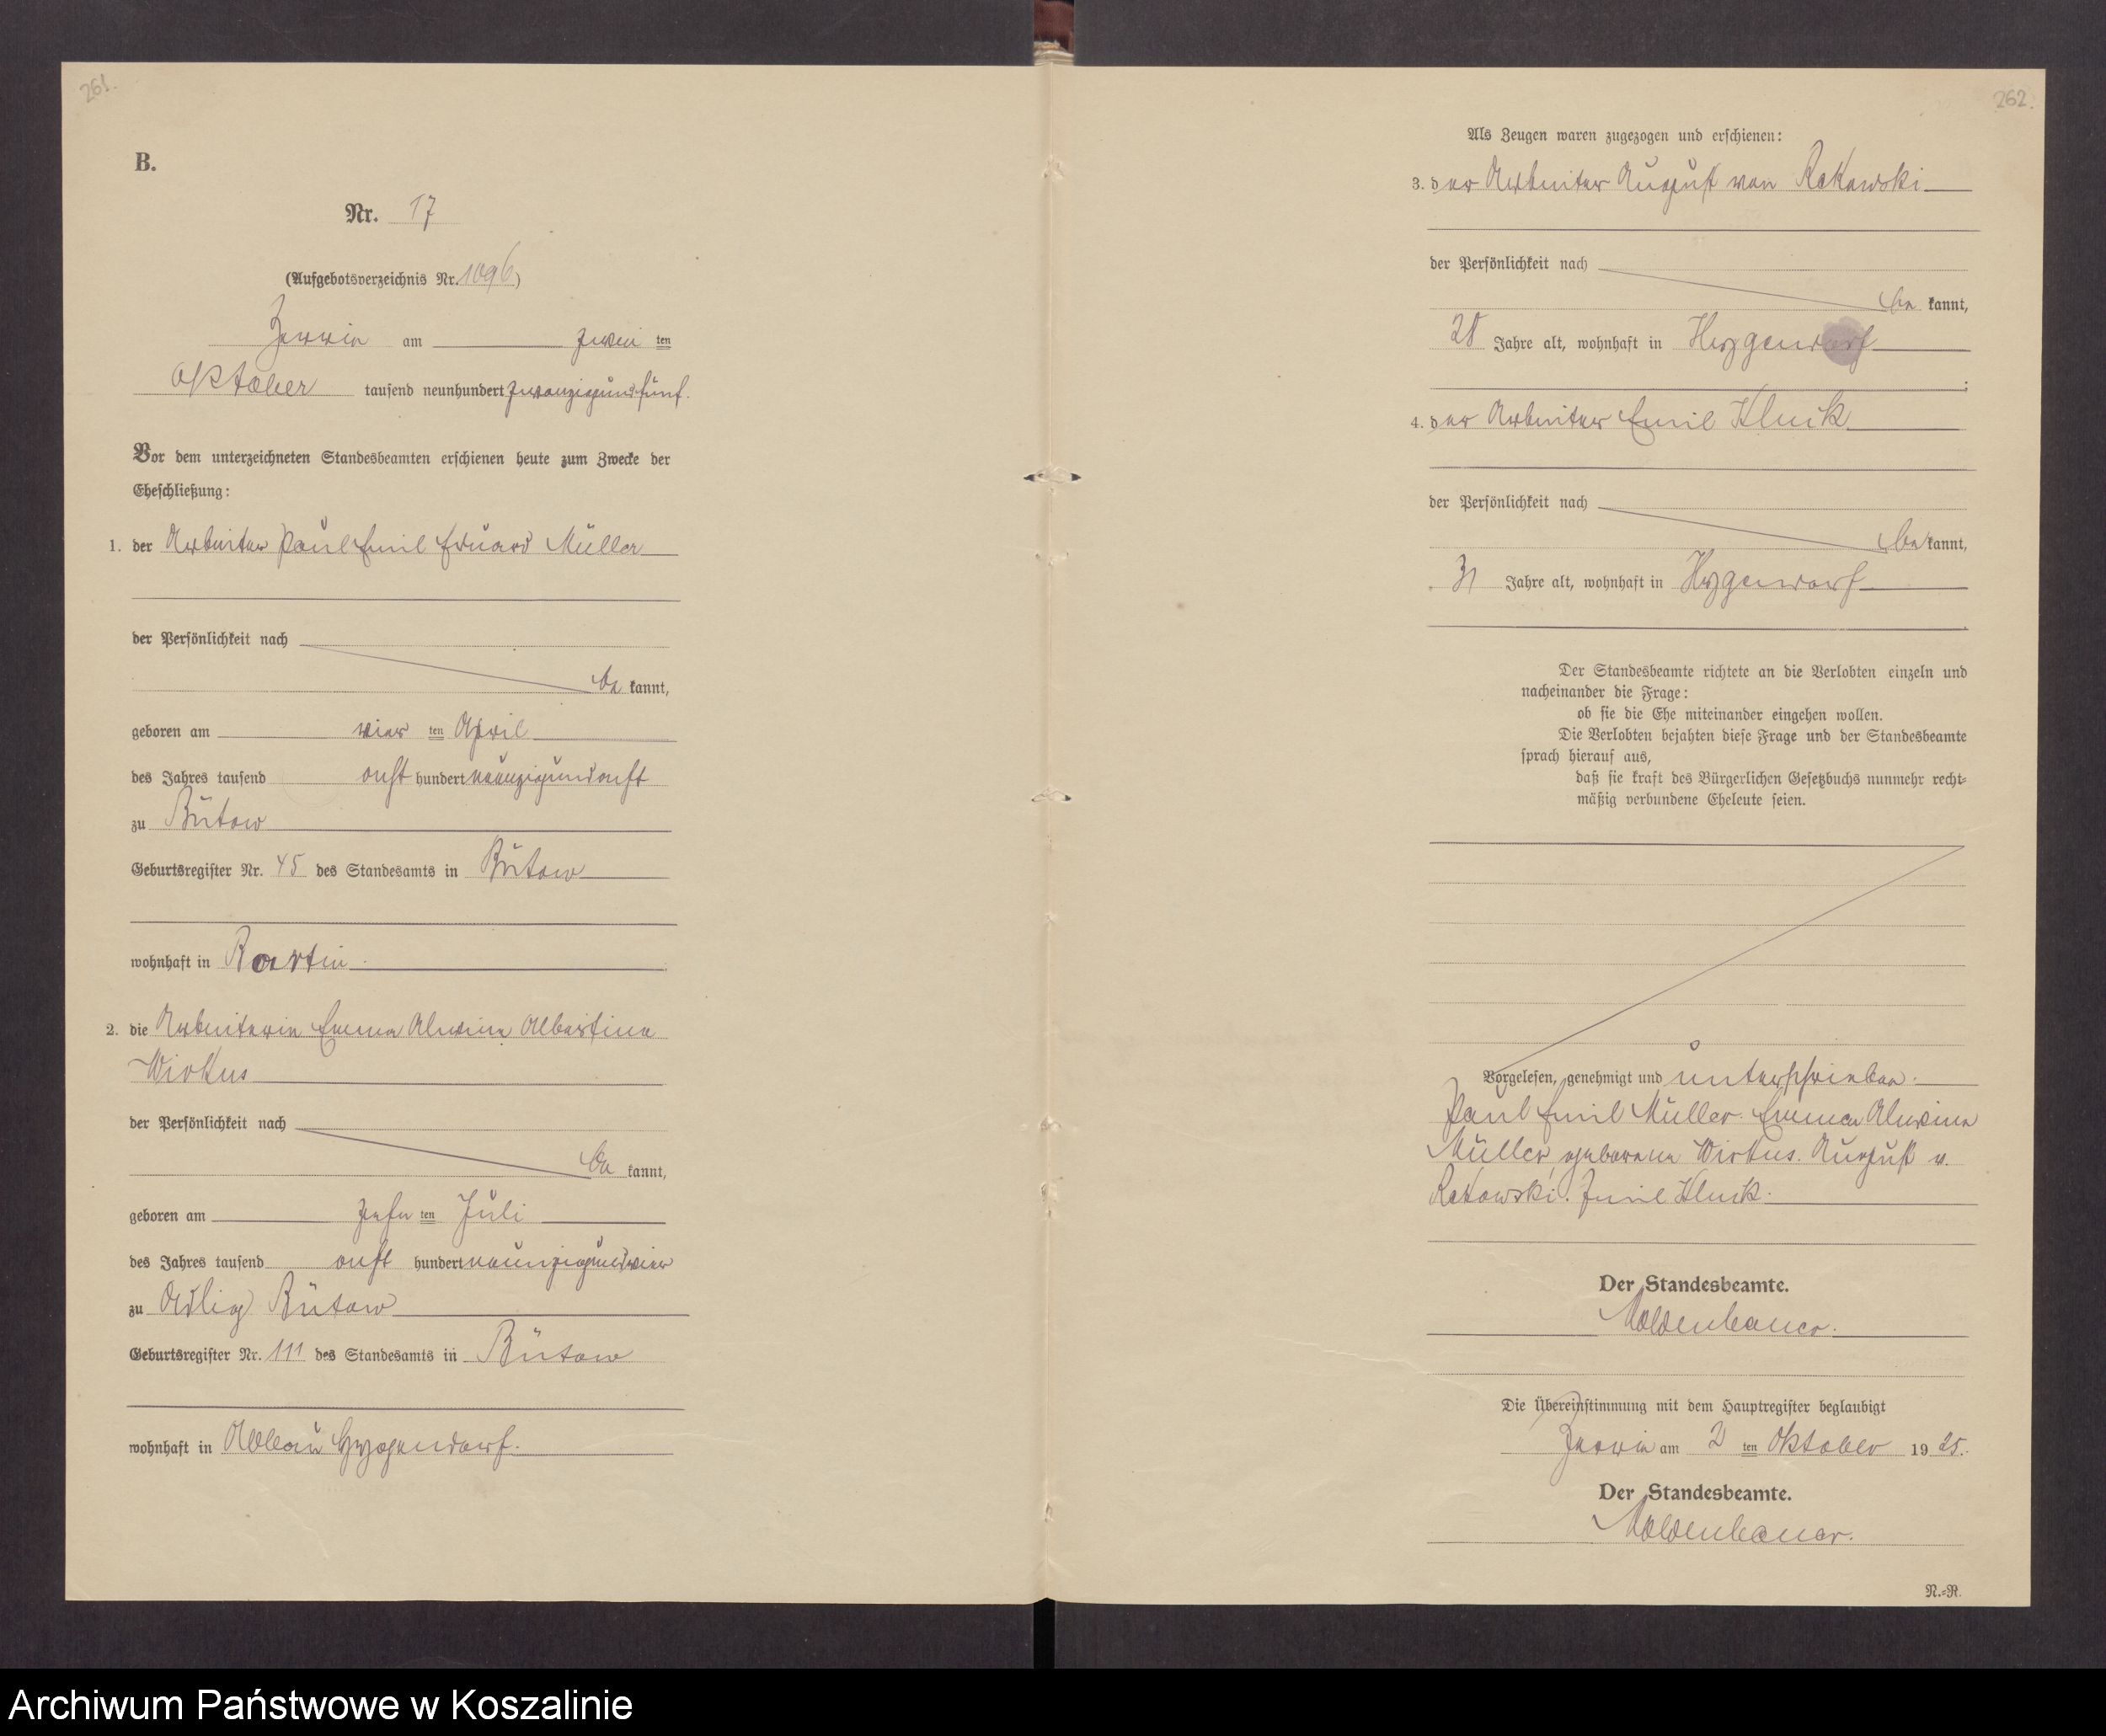 261.
B.
Nr. 17
(Aufgebotsverzeichnis Nr. 1096)
Zerrin am zwei ten
Oktober tausend neunhundert zwanzigundfünf.
Vor dem unterzeichneten Standesbeamten erschienen heute zum Zwecke der
Eheschließung:
1. der Arbeiter Paul Emil Eduard Müller
der Persönlichkeit nach
be kannt,
geboren am vier ten April
des Jahres tausend acht hundert neunzigundacht
zu Bütow
Geburtsregister Nr. 45 des Standesamts in Bütow
wohnhaft in
2. die Arbeiterin Emma Alwine Albertine
Wirkus
der Persönlichkeit nach
be kannt,
geboren am zehn ten Juli
des Jahres tausend acht hundert neunzigundvier
zu Adlig Bütow
Geburtsregister Nr. 111 des Standesamts in Bütow
wohnhaft in Abbau Hygendorf.
262.
Als Zeugen waren zugezogen und erschienen:
3. der Arbeiter August von Rekowski
der Persönlichkeit nach
be kannt,
28 Jahre alt, wohnhaft in Hygendorf
;
4. der Arbeiter Emil Kluck
der Persönlichkeit nach
be kannt,
31 Jahre alt, wohnhaft in Hygendorf
Der Standesbeamte richtete an die Verlobten einzeln und
nacheinander die Frage:
ob sie die Ehe miteinander eingehen wollen.
Die Verlobten bejahten diese Frage und der Standesbeamte
sprach hierauf aus,
daß sie kraft des Bürgerlichen Gesetzbuchs nunmehr recht-
mäßig verbundene Eheleute seien.
Vorgelesen, genehmigt und unterschrieben.
Paul Emil Müller. Emma Alwine
Müller, geborene Wirkus. August v.
Rekowski. Emil Kluck.
Der Standesbeamte.
Moldenhauer.
Die Übereinstimmung mit dem Hauptregister beglaubigt
Zerrin am 2 ten Oktober 19 25.
Der Standesbeamte.
Moldenhauer.
N.-R.
Archiwum Państwowe w Koszalinie